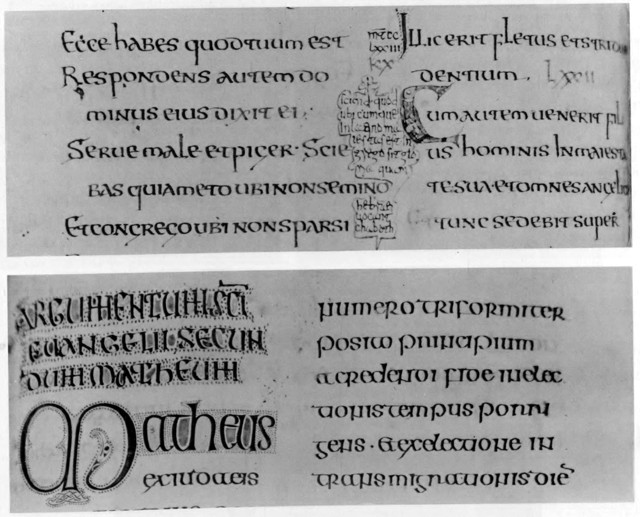 Ecce habes quod tuum est
Respondens autem do
minus eius dixit ei ·
Serue male et piger · Scie
bas quia meto ubi non semino
Et congrego ubi non sparsi
Illic erit fletus et strido
dentium . lxxii
Cum autem uenerit fil
ius hominis in maiesta
te sua et omnes angeli
tunc sedebit super
ARGUMENTUM SCI
EUANGELII SECUN
DUM MATHEUM
Matheus
ex iudaeis
numero triformiter
posito principium
a credendi fide in elec
tionis tempus porri
gens · et ex electione in
transmigrationis die